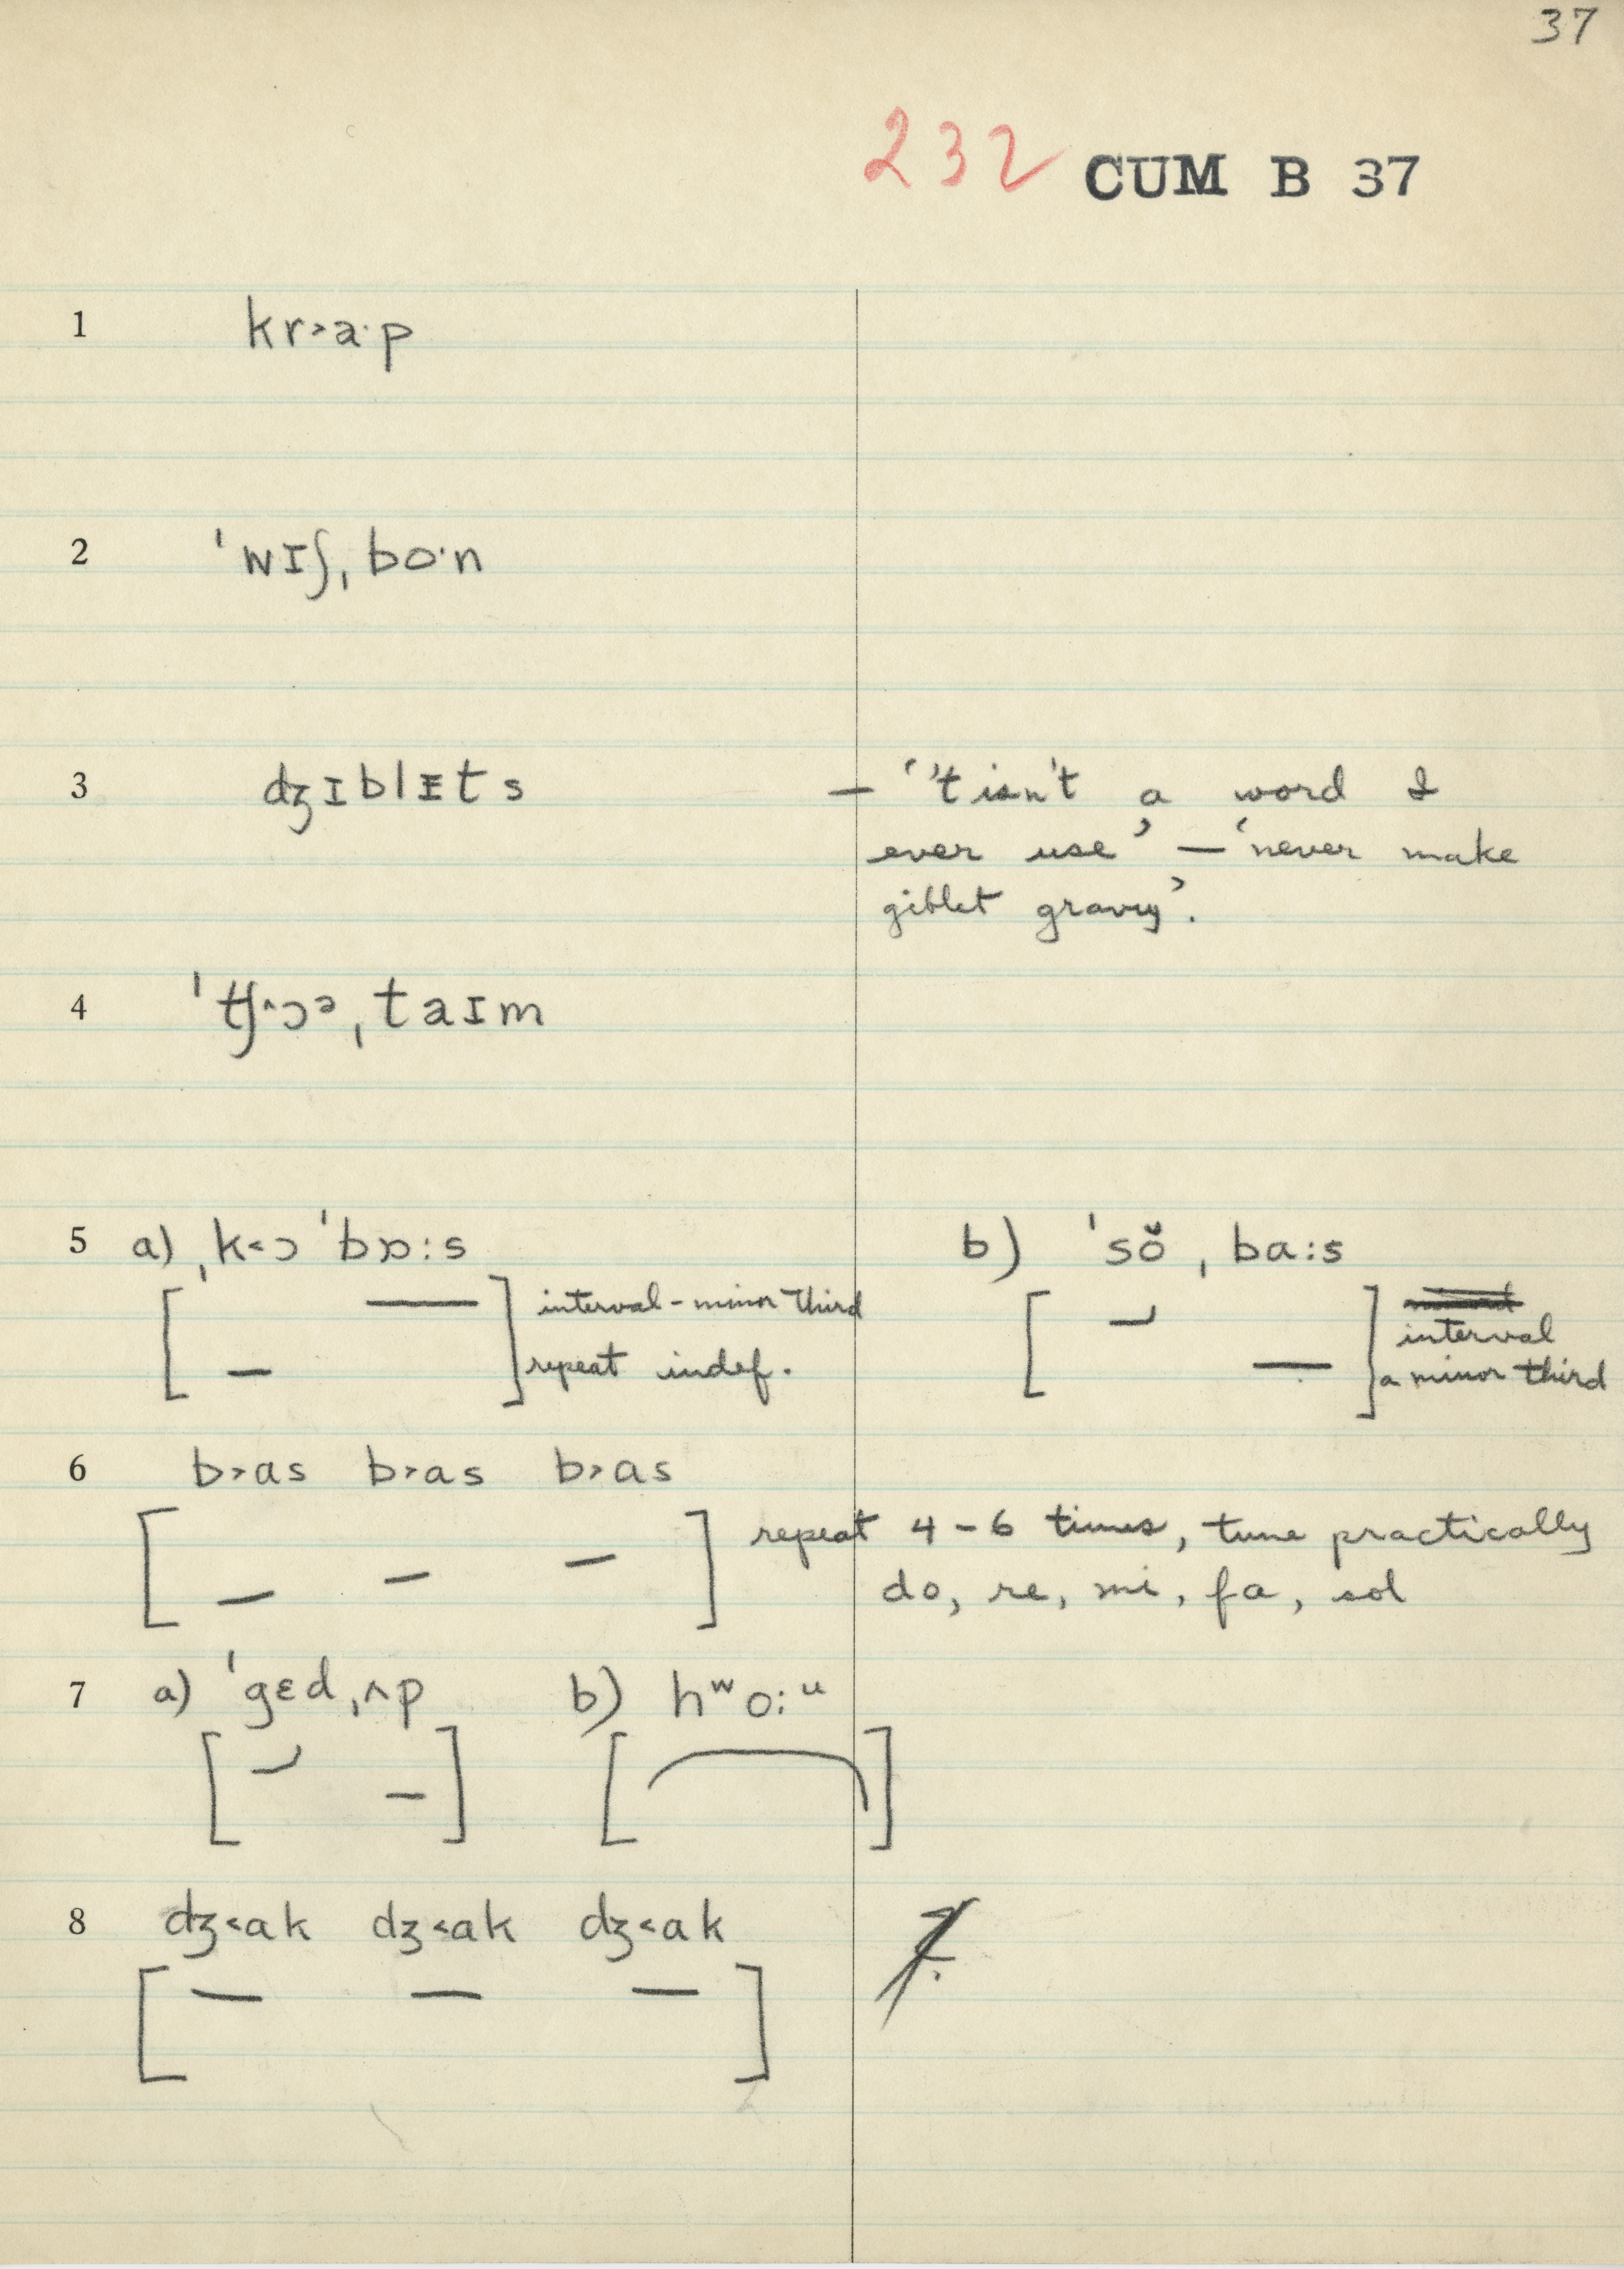 37
232 CUM B 37
1 kr˃a·p
2 ˈwɪʃˌbo·n
3 dʒɪblɪts — ‘’t isn't a word I
ever use’ — ‘never make
giblet gravy’.
4 ˈtʃ˄ɔᵊˌtaɪm
5 a) ˌk˂ɔˈbɒ:s b) ˈsŏˌba:s
interval - minor third
repeat indef.
interval
a minor third
6 b˃as b˃as b˃as
repeat 4-6 times, tune practically
do, re, mi, fa, sol
7 a) ˈgɛdˌʌp b) hʷo:ᵘ
8 dʒ˂ak dʒ˂ak dʒ˂ak